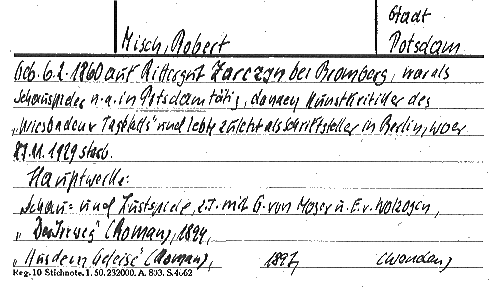 Stadt
Misch, Robert Potsdam
Geb. 6.2.1860 auf Rittergut Zarczyn bei Bromberg, war als
Schauspieler u.a. in Potsdam tätig, danach Kunstkritiker des
„Wiesbadener Tageblatts" und lebte zuletzt als Schriftsteller in Berlin, wo er
27.11.1929 starb.
Hauptwerke:
Schau- und Lustspiele, z.T. mit G. von Moser u. E. v. Wolzogen,
(Roman), 1894,
„Aus dem Geleise" (Roman), 1897
Reg. 10 Stichnote. 1. 50. 232000. A. 803. S. 4662